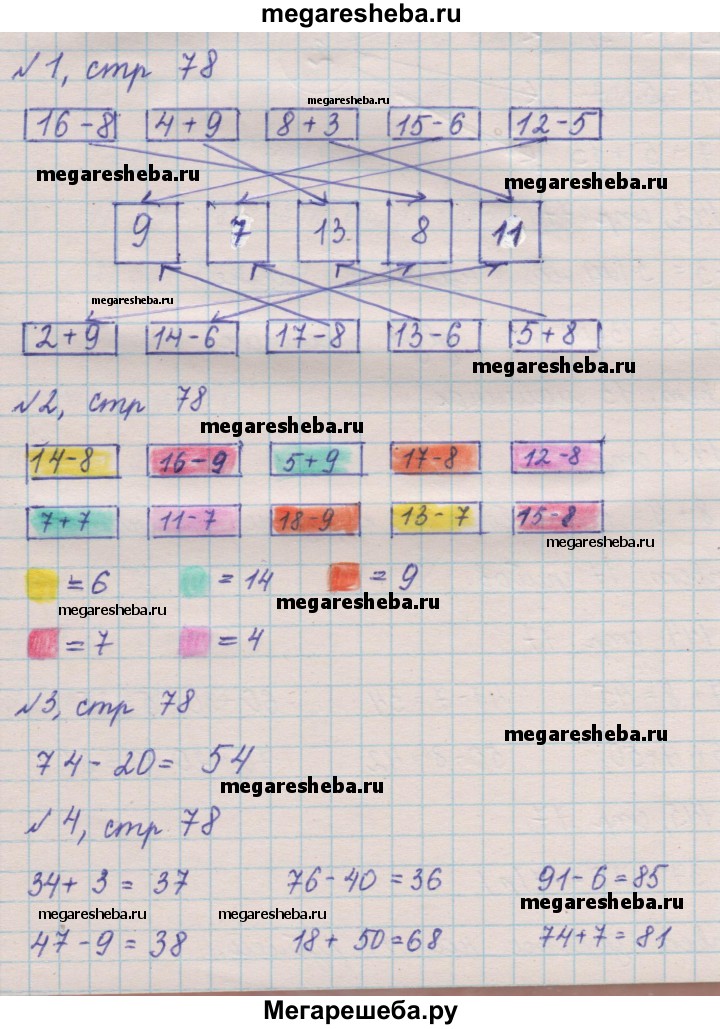 megaresheba.ru
№1, стр 78
megaresheba.ru
16-8 4+9 8+3 15-6 12-5
megaresheba.ru megaresheba.ru
9 7 13 8 11
megaresheba.ru
2+9 14-6 17-8 13-6 5+8
megaresheba.ru
№2, стр 78
megaresheba.ru
14-8 16-9 5+9 17-8 12-8
7+7 11-7 18-9 13-7 15-8
megaresheba.ru
=6 =14 =9
megaresheba.ru megaresheba.ru
=7 =4
№3, стр 78
megaresheba.ru
74-20= 54
megaresheba.ru
№4, стр 78
34+3=37 76-40=36 91-6=85
megaresheba.ru megaresheba.ru megaresheba.ru
47-9=38 18+50=68 74+7=81
Мегарешеба.ру